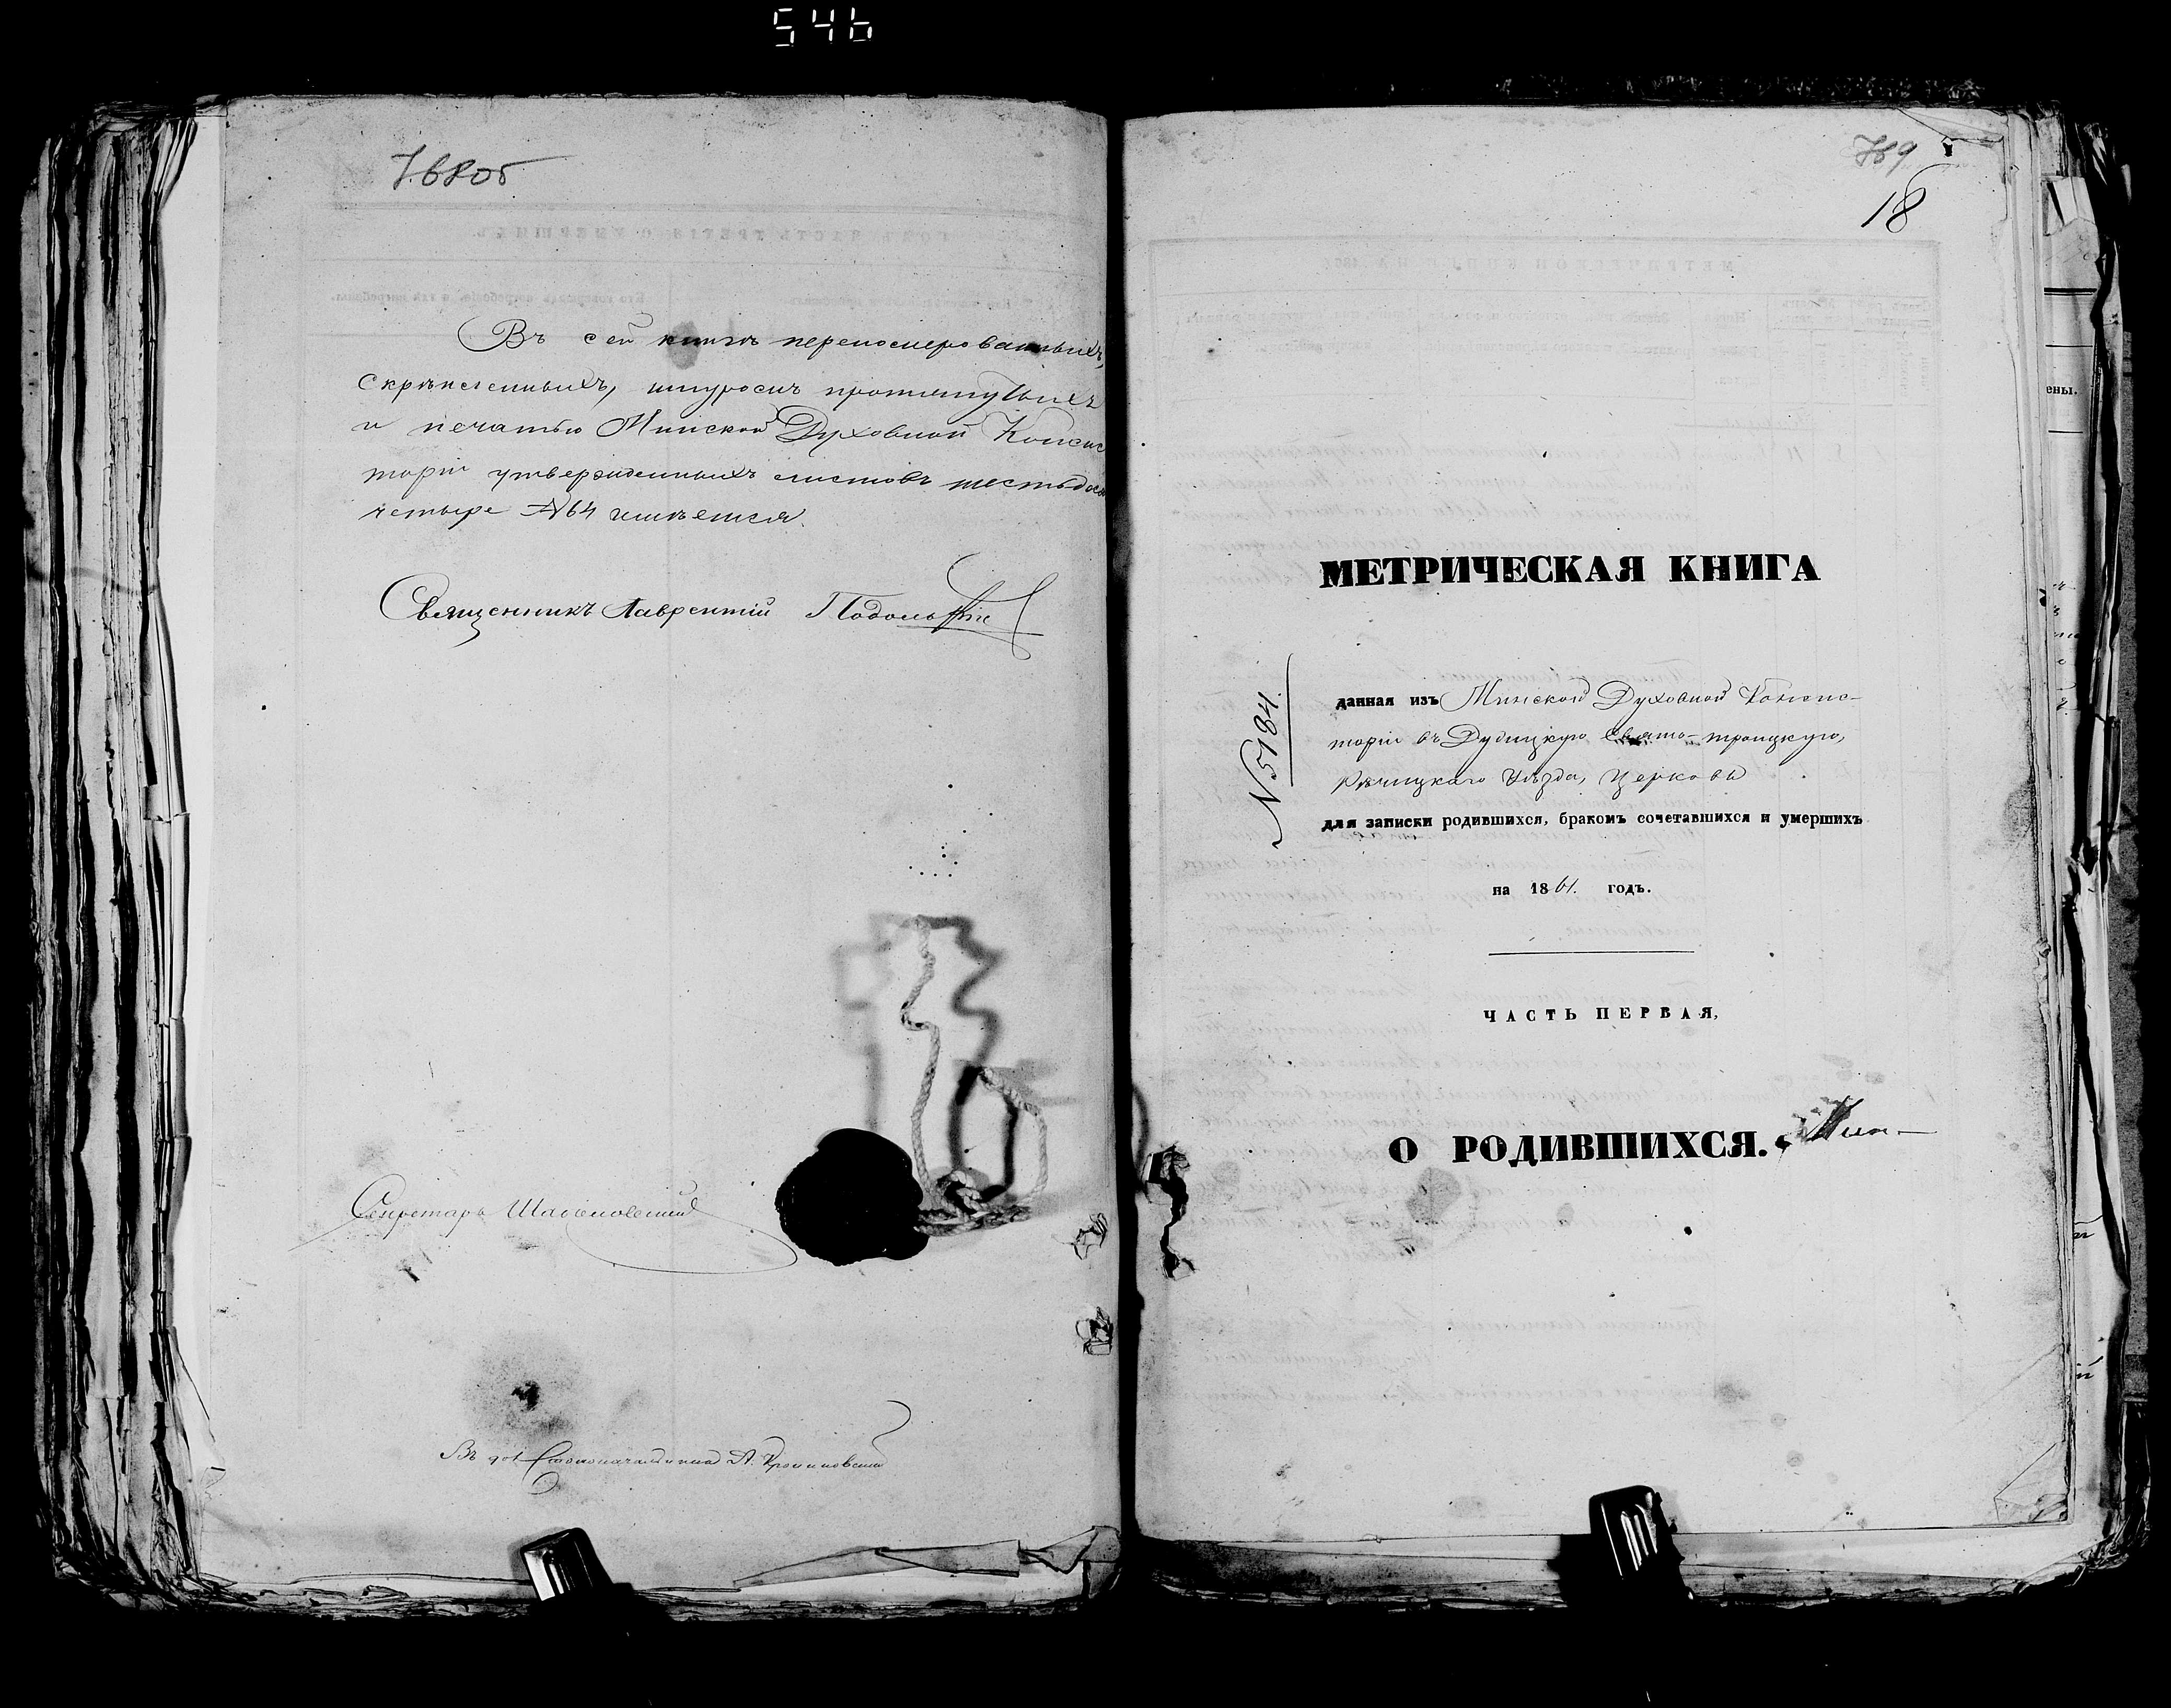 546
768об
Въ сей книгѣ перенумерованныхъ,
скрѣпленныхъ, шнуромъ протянутыхъ
и печатью Минской Духовной Консис
торіи утвержденныхъ листовъ шестьдес
четыре №64 имѣется.
Священникъ Лаврентій Подольскій
Секретарь
Въ дол. Столоначальника А.
769
18
МЕТРИЧЕСКАЯ КНИГА
№5184.
данная изъ Минской Духовной Консис-
торіи въ Дудицкую Свято-троицкую,
Рѣчицкаго Уѣзда, Церковь
для записки родившихся, бракомъ сочетавшихся и умершихъ
на 1861. годъ.
ЧАСТЬ ПЕРВАЯ,
О РОДИВШИХСЯ.
ены.